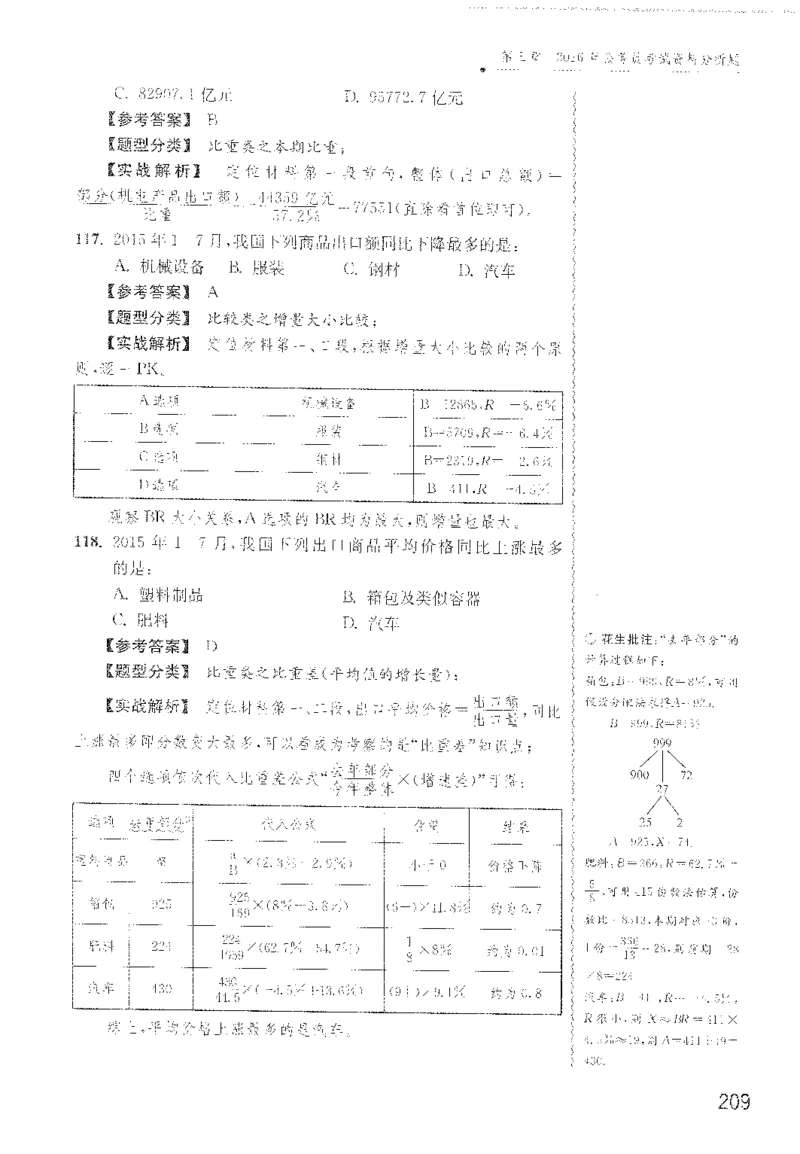 第三章 2016年公务员考试资料分析题
C. 82907.1亿元 D. 95772.7亿元
【参考答案】 B
【题型分类】 比重类之本期比重；
【实战解析】 定位材料第一段首句，整体(出口总额)=
部分(机电产品出口额) 44359亿元
比重 57.2% =77551(直除看首位即可)。
117. 2015年1 7月，我国下列商品出口额同比下降最多的是：
A. 机械设备 B. 服装 C. 钢材 D. 汽车
【参考答案】 A
【题型分类】 比较类之增量大小比较；
【实战解析】 定位材料第一、二段，根据增量大小比较的两个原
则，逐一PK。
A选项 机械设备 B 12865，R -5.6%
B选项 服装 B=5709，R=-6.4%
C选项 钢材 B=2319，R= 2.6%
D选项 汽车 B 411，R -4.5%
观察BR大小关系，A选项的BR均为最大，则增量也最大。
118. 2015年1 7月，我国下列出口商品平均价格同比上涨最多
的是：
A. 塑料制品 B. 箱包及类似容器
C. 肥料 D. 汽车
【参考答案】 D
【题型分类】 比重类之比重差(平均值的增长量)；
【实战解析】 定位材料第一、二段，出口平均价格= 出口额
出口量 ，同比
上涨最多即分数变大最多，可以看成为考察的是“比重差”知识点；
四个选项依次代入比重差公式“ 去年部分
今年整体 ×(增速差)”可得：
选项 去年部分 代入公式 估算 结果
塑料制品 略 A
B ×(2.3%-2.9%) 小于0 价格下降
箱包 925 925
169 ×(8%-3.8%) 约为0.7
肥料 224 224
1959 ×(62.7%-54.7%) 1
8 ×8% 约为0.01
汽车 430 430
41.5 ×(-4.5%+13.6%) (9+)×9.1% 约为0.8
综上，平均价格上涨最多的是汽车。
① 花生批注：“去年部分”的
计算过程如下：
箱包：B=999，R=8%，可用
假设分配法求得A=925。
B 999，R=8%
999
900 72
27
25 2
A 925，X 74.
肥料：B=366，R=62.7%=
5
8 ，可用415份数法估算，份
数比 8513，本期对应13份，
1份= 366
13 =28，则前期 28
×8=224
汽车：B 411，R= 4.5%，
R很小，则X≈BR=411×
4.5%≈19，则A=411+19=
430.
209